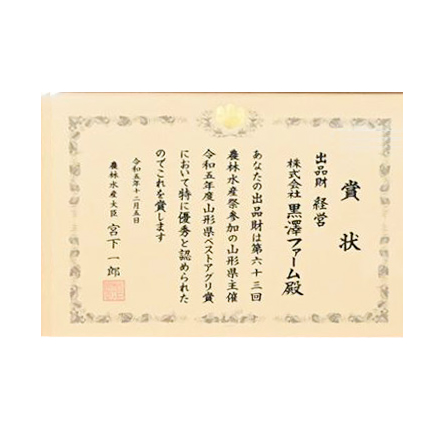 賞状
出品財 経営
株式会社 黒澤ファーム殿
あなたの出品財は第六十三回
農林水産祭参加の山形県主催
令和五年度山形県ベストアグリ賞
において特に優秀と認められた
のでこれを賞します
令和五年十二月五日
農林水産大臣 宮下一郎